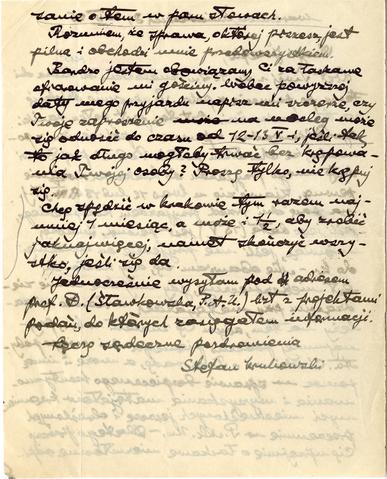 zanie o tem w paru słowach.
Rozumiem, że sprawa, o której piszesz jest
pilna i obchodzi mnie przedewszystkiem.
Bardzo jestem obowiązany Ci za łaskawe
ofiarowanie mi gościny. Wobec powyższej
daty mego przyjazdu napisz mi wreszcie, czy
Twoje zaproszenie na nocleg może
się odnosić do czasu od 12-15 V i, jeśli tak
to jak długo mogłoby trwać bez krępowa-
nia Twojej osoby? Proszę tylko, nie krępuj
się.
Chcę spędzić w Krakowie tym razem naj-
mniej 1 miesiąc, a może i 1½, aby zrobić
jaknajwięcej, nawet skończyć wszy-
stko, jeśli się da.
Jednocześnie wysyłam pod adresem
prof. D. (Sławkowska, P.A.U.) list z projektami
podań, do których zasięgałem informacji.
Łączę serdeczne pozdrowienia
Stefan Krukowski